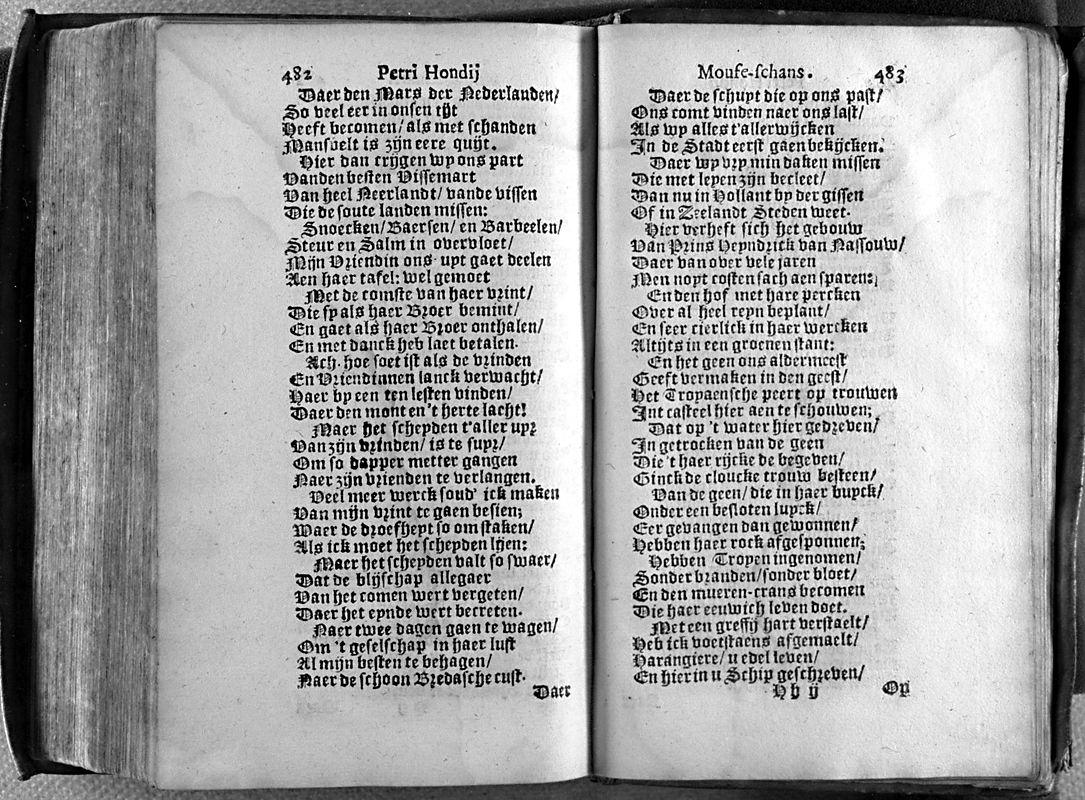 482 Petri Hondij
Daer den Mars der Nederlanden/
So veel eer in onsen tijt
Heeft becomen/ als met schanden
Mansvelt is zijn eere quijt.
Hier dan crijgen wy ons part
Vanden besten Vissemart
Van heel Neerlandt/ vande vissen
Die de soute landen missen:
Snoecken/ Baersen/ en Barbeelen/
Steur en Salm in overvloet/
Mijn Vriendin ons uyt gaet deelen
Aen haer tafel: wel gemoet
Met de comste van haer vrint/
Die sy als haer Broer bemint/
En gaet als haer Broer onthalen/
En met danck heb laet betalen.
Ach. hoe soet ist als de vrinden
En Vriendinnen lanck verwacht/
Haer by een ten lesten vinden/
Daer den mont en 't herte lacht!
Maer het scheyden t'aller uyr
Van zijn vrinden/ is te suyr/
Om so dapper metter gangen
Naer zijn vrienden te verlangen.
Veel meer werck soud' ick maken
Van mijn vrint te gaen besien;
Waer de droefheyt so om staken/
Als ick moet het scheyden lijen:
Maer het scheyden valt so swaer/
Dat de blijschap allegaer
Van het comen wert vergeten/
Daer het eynde wert becreten.
Naer twee dagen gaen te wagen/
Om 't geselschap in haer lust
Al mijn besten te behagen/
Naer de schoon Bredasche cust.
Daer
Mouse-schans. 483
Daer de schuyt die op ons past/
Ons comt vinden naer ons last/
Als wy alles t'allerwijcken
In de Stadt eerst gaen bekijcken.
Daer wy vry min daken missen
Die met leyen zijn becleet/
Dan nu in Hollant by der gissen
Of in Zeelandt Steden weet.
Hier verheft sich het gebouw
Van Prins Heyndrick van Nassouw/
Daer van over vele jaren
Men noyt costen sach aen sparen:
En den hof met hare percken
Over al heel reyn beplant/
En seer cierlick in haer wercken
Altijts in een groenen stant:
En het geen ons aldermeest
Geeft vermaken in den geest/
Het Troyaensche peert op trouwen
Int casteel hier aen te schouwen;
Dat op 't water hier gedreven/
In getrocken van de geen
Die 't haer rijcke de begeven/
Ginck de cloucke trouw besteen/
Van de geen/ die in haer buyck/
Onder een besloten luyck/
Eer gevangen dan gewonnen/
Hebben haer rock afgesponnen;
Hebben Troyen ingenomen/
Sonder branden/ sonder bloet/
En den mueren-crans becomen
Die haer eeuwich leven doet.
Met een greffij hart verstaelt/
Heb ick voetstaens afgemaelt/
Harangiere/ u edel leven/
En hier in u Schip geschreven/
Hh ij Op